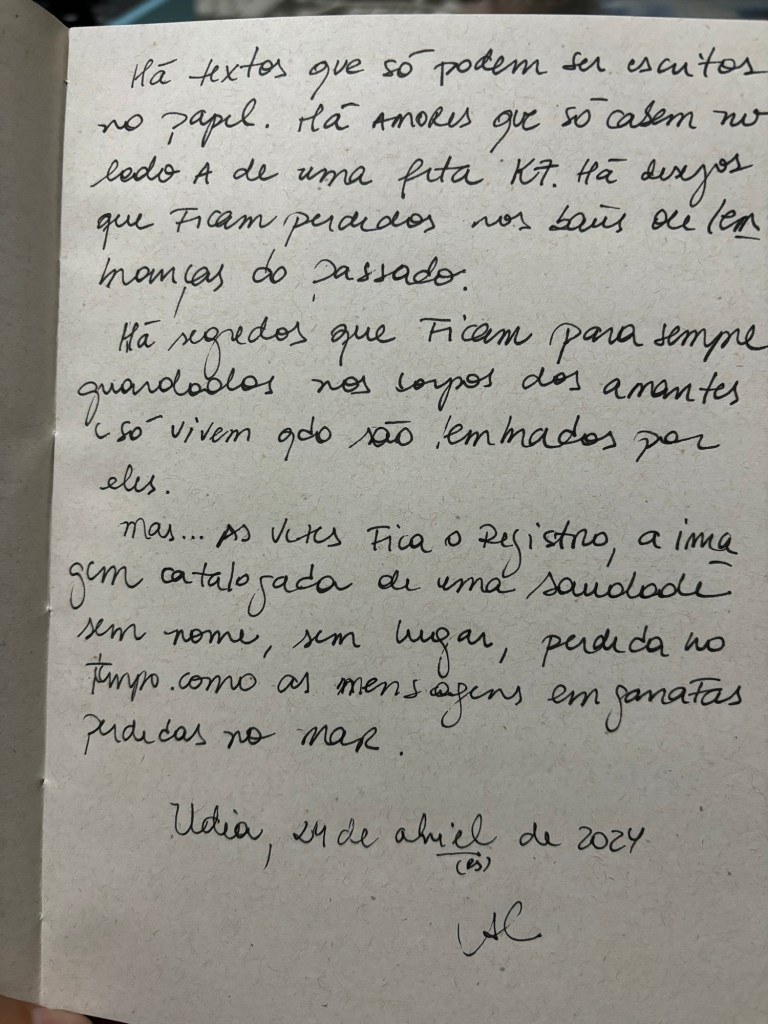 Há textos que só podem ser escritos
no papel. Há AMORES que só cabem no
lado A de uma fita K7. Há desejos
que Ficam perdidos nos baús de lem
branças do passado.
Há segredos que Ficam para sempre
guardados nos corpos dos amantes
e só vivem qdo são lembrados por
eles.
mas... As vezes Fica o Registro, a ima
gem catalogada de uma saudade
sem nome, sem lugar, perdida no
tempo. como as mensagens em garrafas
perdidas no MAR.
Udia, 24 de abriel de 2024
(es)
AC